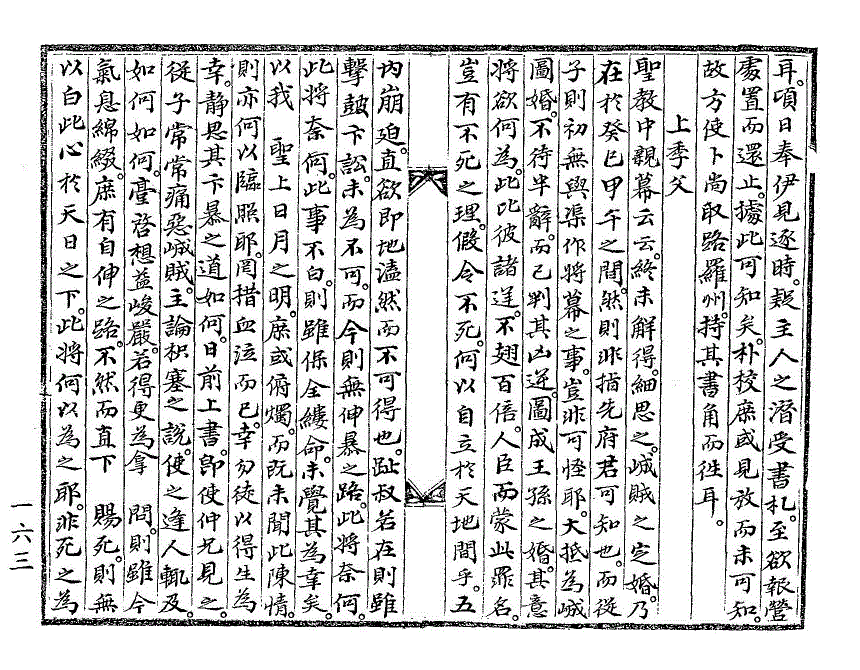 耳。頃日奉伊見逐時。疑主人之潛受書札。至欲報營
處置而還止。據此可知矣。朴校庶或見放而未可知。
故方使卜尚取路羅州。持其書角而往耳。
上季父
聖教中親幕云云。終未解得。細思之。㦿賊之定婚。乃
在於癸巳甲午之間。然則非指先府君可知也。而從
子則初無與渠作將幕之事。豈非可怪耶。大抵為㦿
圖婚。不待半辭。而已判其凶逆。圖成王孫之婚。其意
將欲何為。此比彼諸逆。不翅百倍。人臣而蒙此罪名。
豈有不死之理。假令不死。何以自立於天地間乎。五
內崩迫。直欲即地溘然而不可得也。趾叔若在則雖
擊皷卞訟。未為不可。而今則無伸暴之路。此將奈何。
此將奈何。此事不白。則雖保全縷命。未覺其為幸矣。
以我 聖上日月之明。庶或俯燭。而既未聞此陳情。
則亦何以臨照耶。罔措血泣而已。幸勿徒以得生為
幸。靜思其卞暴之道如何。日前上書。即使仲兄見之。
從子常常痛惡㦿賊。主論枳塞之說。使之逢人輒及。
如何如何。臺啓想益峻嚴。若得更為拿 問。則雖今
氣息綿綴。庶有自伸之路。不然而直下 賜死。則無
以白此心於天日之下。此將何以為之耶。非死之為
一六三